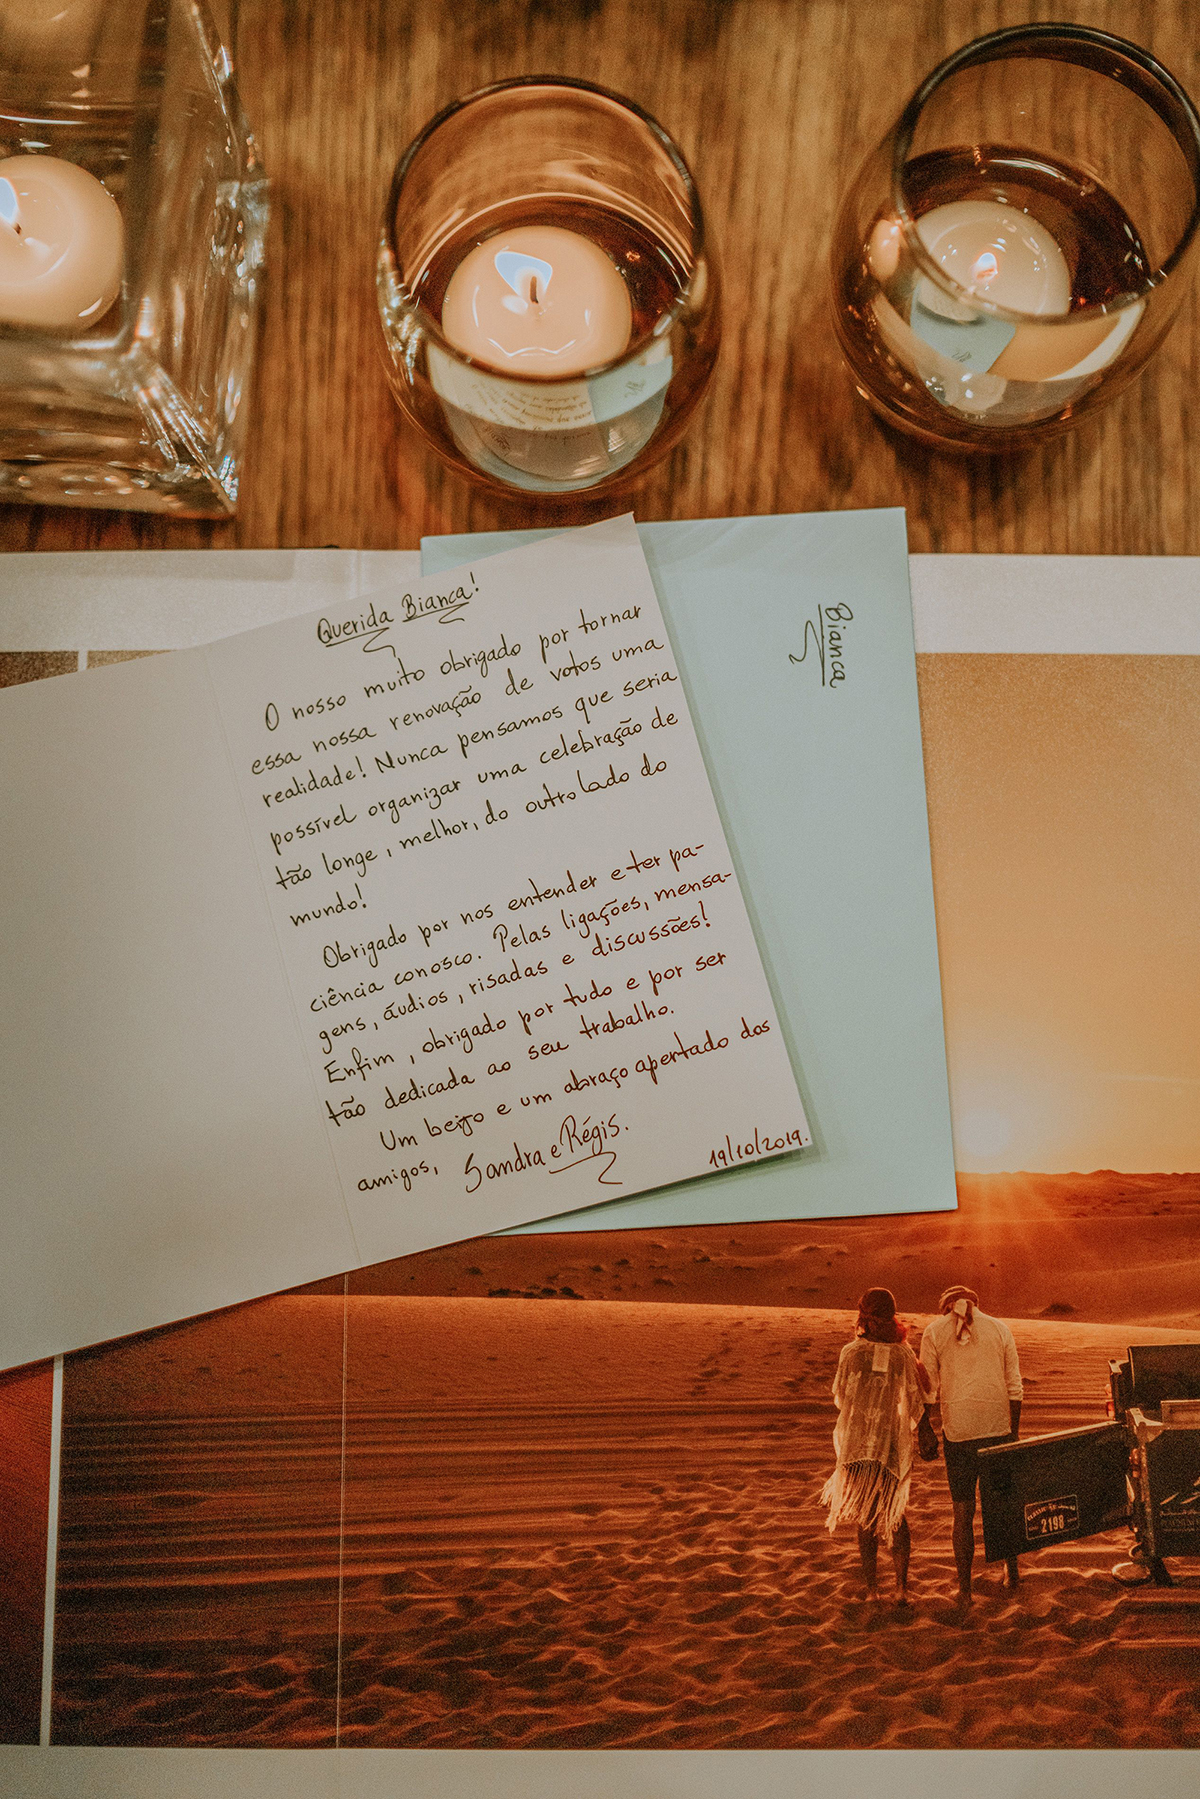 Querida Bianca!
O nosso muito obrigado por tornar
essa nossa renovação de votos uma
realidade! Nunca pensamos que seria
possível organizar uma celebração de
tão longe, melhor, do outro lado do
mundo!
Obrigado por nos entender e ter pa-
ciência conosco. Pelas ligações, mensa-
gens, áudios, risadas e discussões!
Enfim, obrigado por tudo e por ser
tão dedicada ao seu trabalho.
Um beijo e um abraço apertado dos
amigos, Sandra e Régis.
19/10/2019.
Bianca
2198